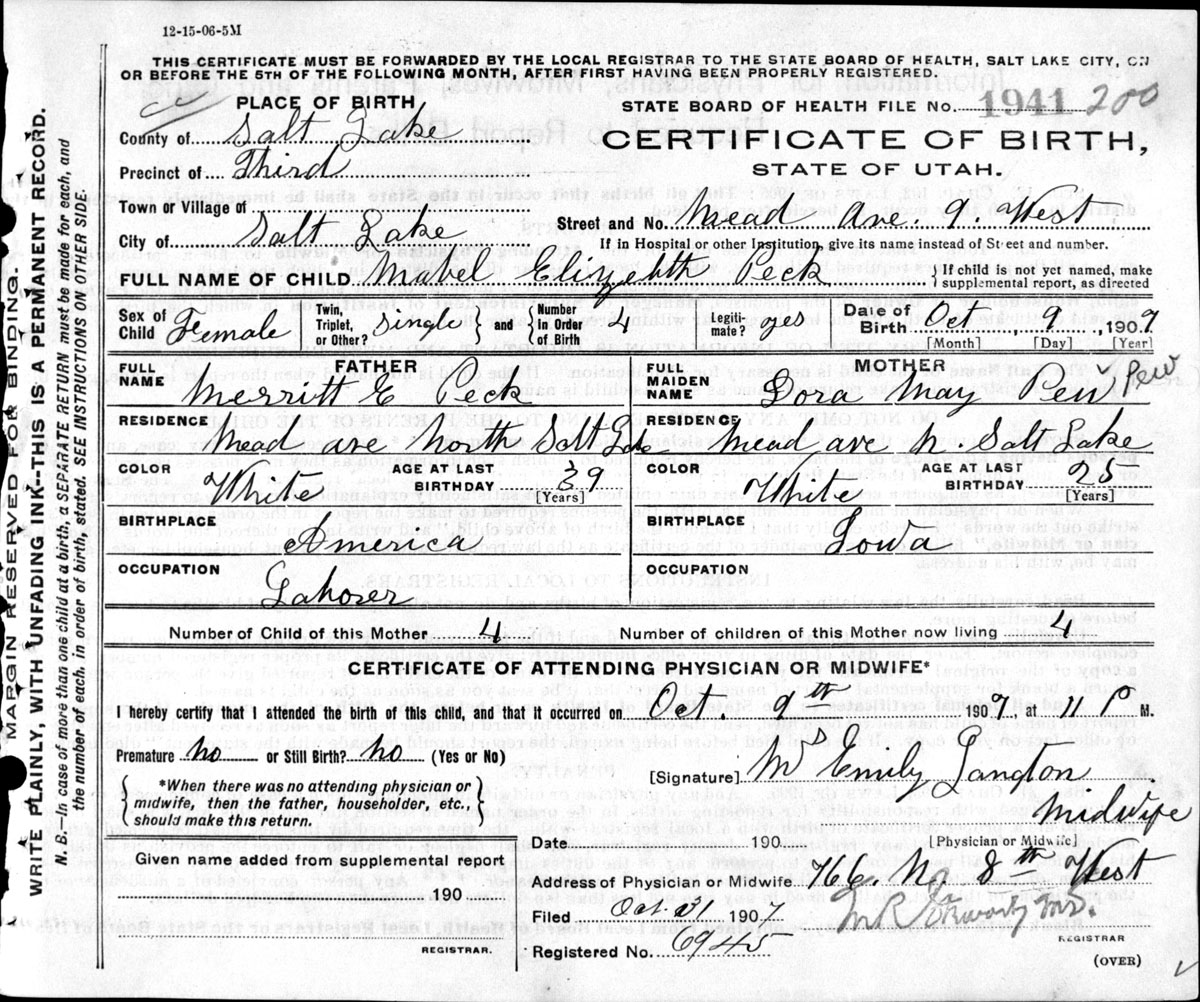 12-15-06-5M
THIS CERTIFICATE MUST BE FORWARDED BY THE LOCAL REGISTRAR TO THE STATE BOARD OF HEALTH, SALT LAKE CITY, ON
OR BEFORE THE 5TH OF THE FOLLOWING MONTH, AFTER FIRST HAVING BEEN PROPERLY REGISTERED.
MARGIN RESERVED FOR BINDING.
WRITE PLAINLY, WITH UNFADING INK--THIS IS A PERMANENT RECORD.
N. B.—In case of more than one child at a birth, a SEPARATE RETURN must be made for each, and
the number of each, in order of birth, stated. SEE INSTRUCTIONS ON OTHER SIDE.
PLACE OF BIRTH
STATE BOARD OF HEALTH FILE No. 1941 200
County of Salt Lake
CERTIFICATE OF BIRTH,
Precinct of Third
STATE OF UTAH.
Town or Village of
Street and No. Mead Ave. 9. West
City of Salt Lake
If in Hospital or other Institution, give its name instead of Street and number.
FULL NAME OF CHILD Mabel Elizabeth Peck
If child is not yet named, make
supplemental report, as directed
Sex of Child Female
Twin, Triplet, or Other? single
and Number in Order of Birth 4
Legitimate? yes
Date of Birth Oct 9, 1907
[Month] [Day] [Year]
FATHER
FULL NAME Merritt E Peck
RESIDENCE Mead ave North Salt Lk
COLOR White
AGE AT LAST BIRTHDAY 39
[Years]
BIRTHPLACE America
OCCUPATION Laborer
MOTHER
FULL MAIDEN NAME Dora May Pew Pew
RESIDENCE Mead ave N. Salt Lake
COLOR White
AGE AT LAST BIRTHDAY 25
[Years]
BIRTHPLACE Iowa
OCCUPATION
Number of Child of this Mother 4
Number of children of this Mother now living 4
CERTIFICATE OF ATTENDING PHYSICIAN OR MIDWIFE*
I hereby certify that I attended the birth of this child, and that it occurred on Oct. 9th 1907, at 11 P M.
Premature no or Still Birth? no (Yes or No)
[Signature] Mrs Emily Langton
Midwife
*When there was no attending physician or
midwife, then the father, householder, etc.,
should make this return.
Date 190
[Physician or Midwife]
Given name added from supplemental report
190
REGISTRAR.
Address of Physician or Midwife 766. No 8th West
Filed Oct. 21 1907
REGISTRAR
Registered No. 6945
(OVER)